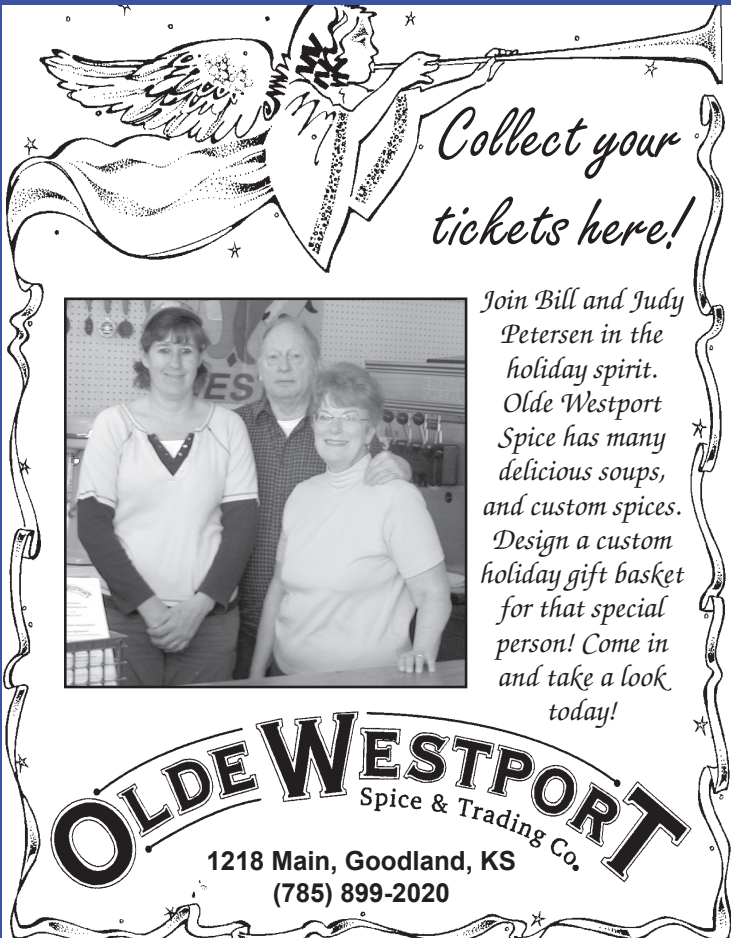 Collect your
tickets here!
Join Bill and Judy
Petersen in the
holiday spirit.
Olde Westport
Spice has many
delicious soups,
and custom spices.
Design a custom
holiday gift basket
for that special
person! Come in
and take a look
today!
ES
OLDE WESTPORT
Spice & Trading Co.
1218 Main, Goodland, KS
(785) 899-2020